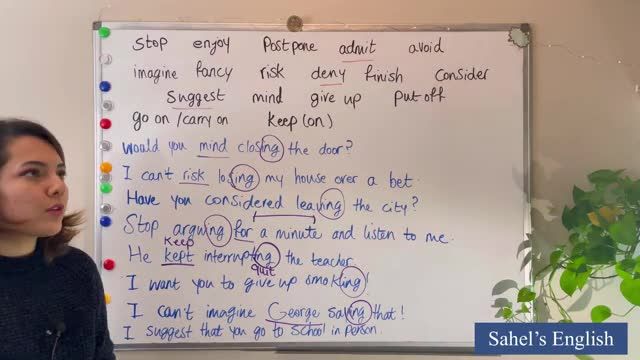 Stop enjoy Postpone admit avoid
imagine fancy risk deny finish Consider
Suggest mind give up Put off
go on /carry on Keep (on)
Would you mind closing the door?
I can't risk losing my house over a bet.
Have you considered leaving the city?
Stop arguing for a minute and listen to me.
Keep
He kept interrupting the teacher.
quit
I want you to give up smoking!
I can't imagine George saying that!
I suggest that you go to School in Person.
Sahel's English